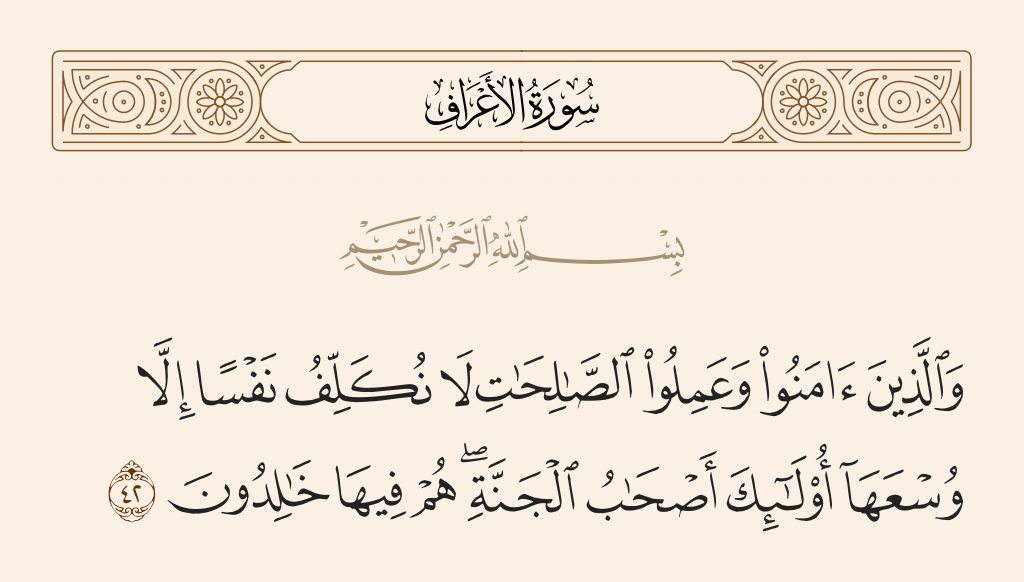 سُورَةُ الأَعْرَافِ
بِسْمِ ٱللَّهِ ٱلرَّحْمَٰنِ ٱلرَّحِيمِ
وَٱلَّذِينَ ءَامَنُوا۟ وَعَمِلُوا۟ ٱلصَّـٰلِحَـٰتِ لَا نُكَلِّفُ نَفْسًا إِلَّا
وُسْعَهَآ أُو۟لَـٰٓئِكَ أَصْحَـٰبُ ٱلْجَنَّةِ ۖ هُمْ فِيهَا خَـٰلِدُونَ ٤٢